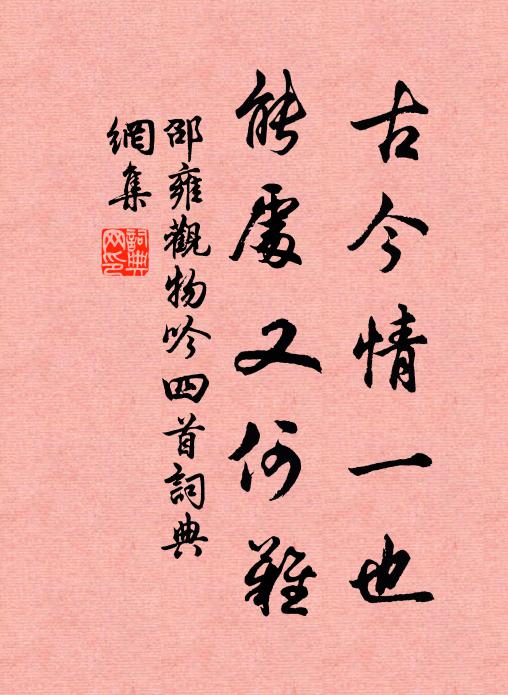 古今情一也
能處又何難
邵雍觀物吟四首詞典
網集
詞典網印